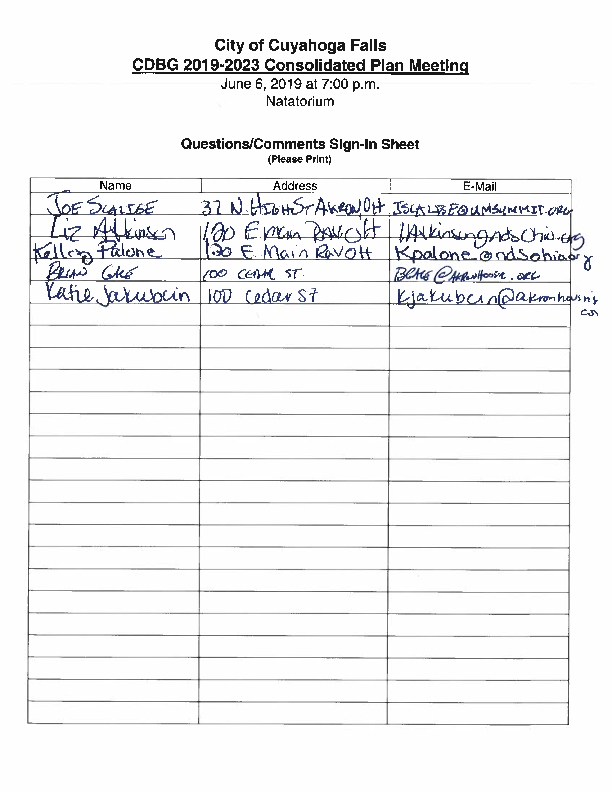 City of Cuyahoga Falls
CDBG 2019-2023 Consolidated Plan Meeting
June 6, 2019 at 7:00 p.m.
Natatorium
Questions/Comments Sign-In Sheet
(Please Print)
Name Address E-Mail
JOE SCALISE 37 N. HIGH ST AKRON OH JSCALISE@UMSUMMIT.ORG
Liz Atkinson 120 E Main RAV OH
Kelley Palone 120 E. Main Rav OH Kpalone@ndsohio.org
BRIAN GAGE 100 CEDAR ST.
Katie Jakubcin 100 Cedar St Kjakubcin@akronhousing